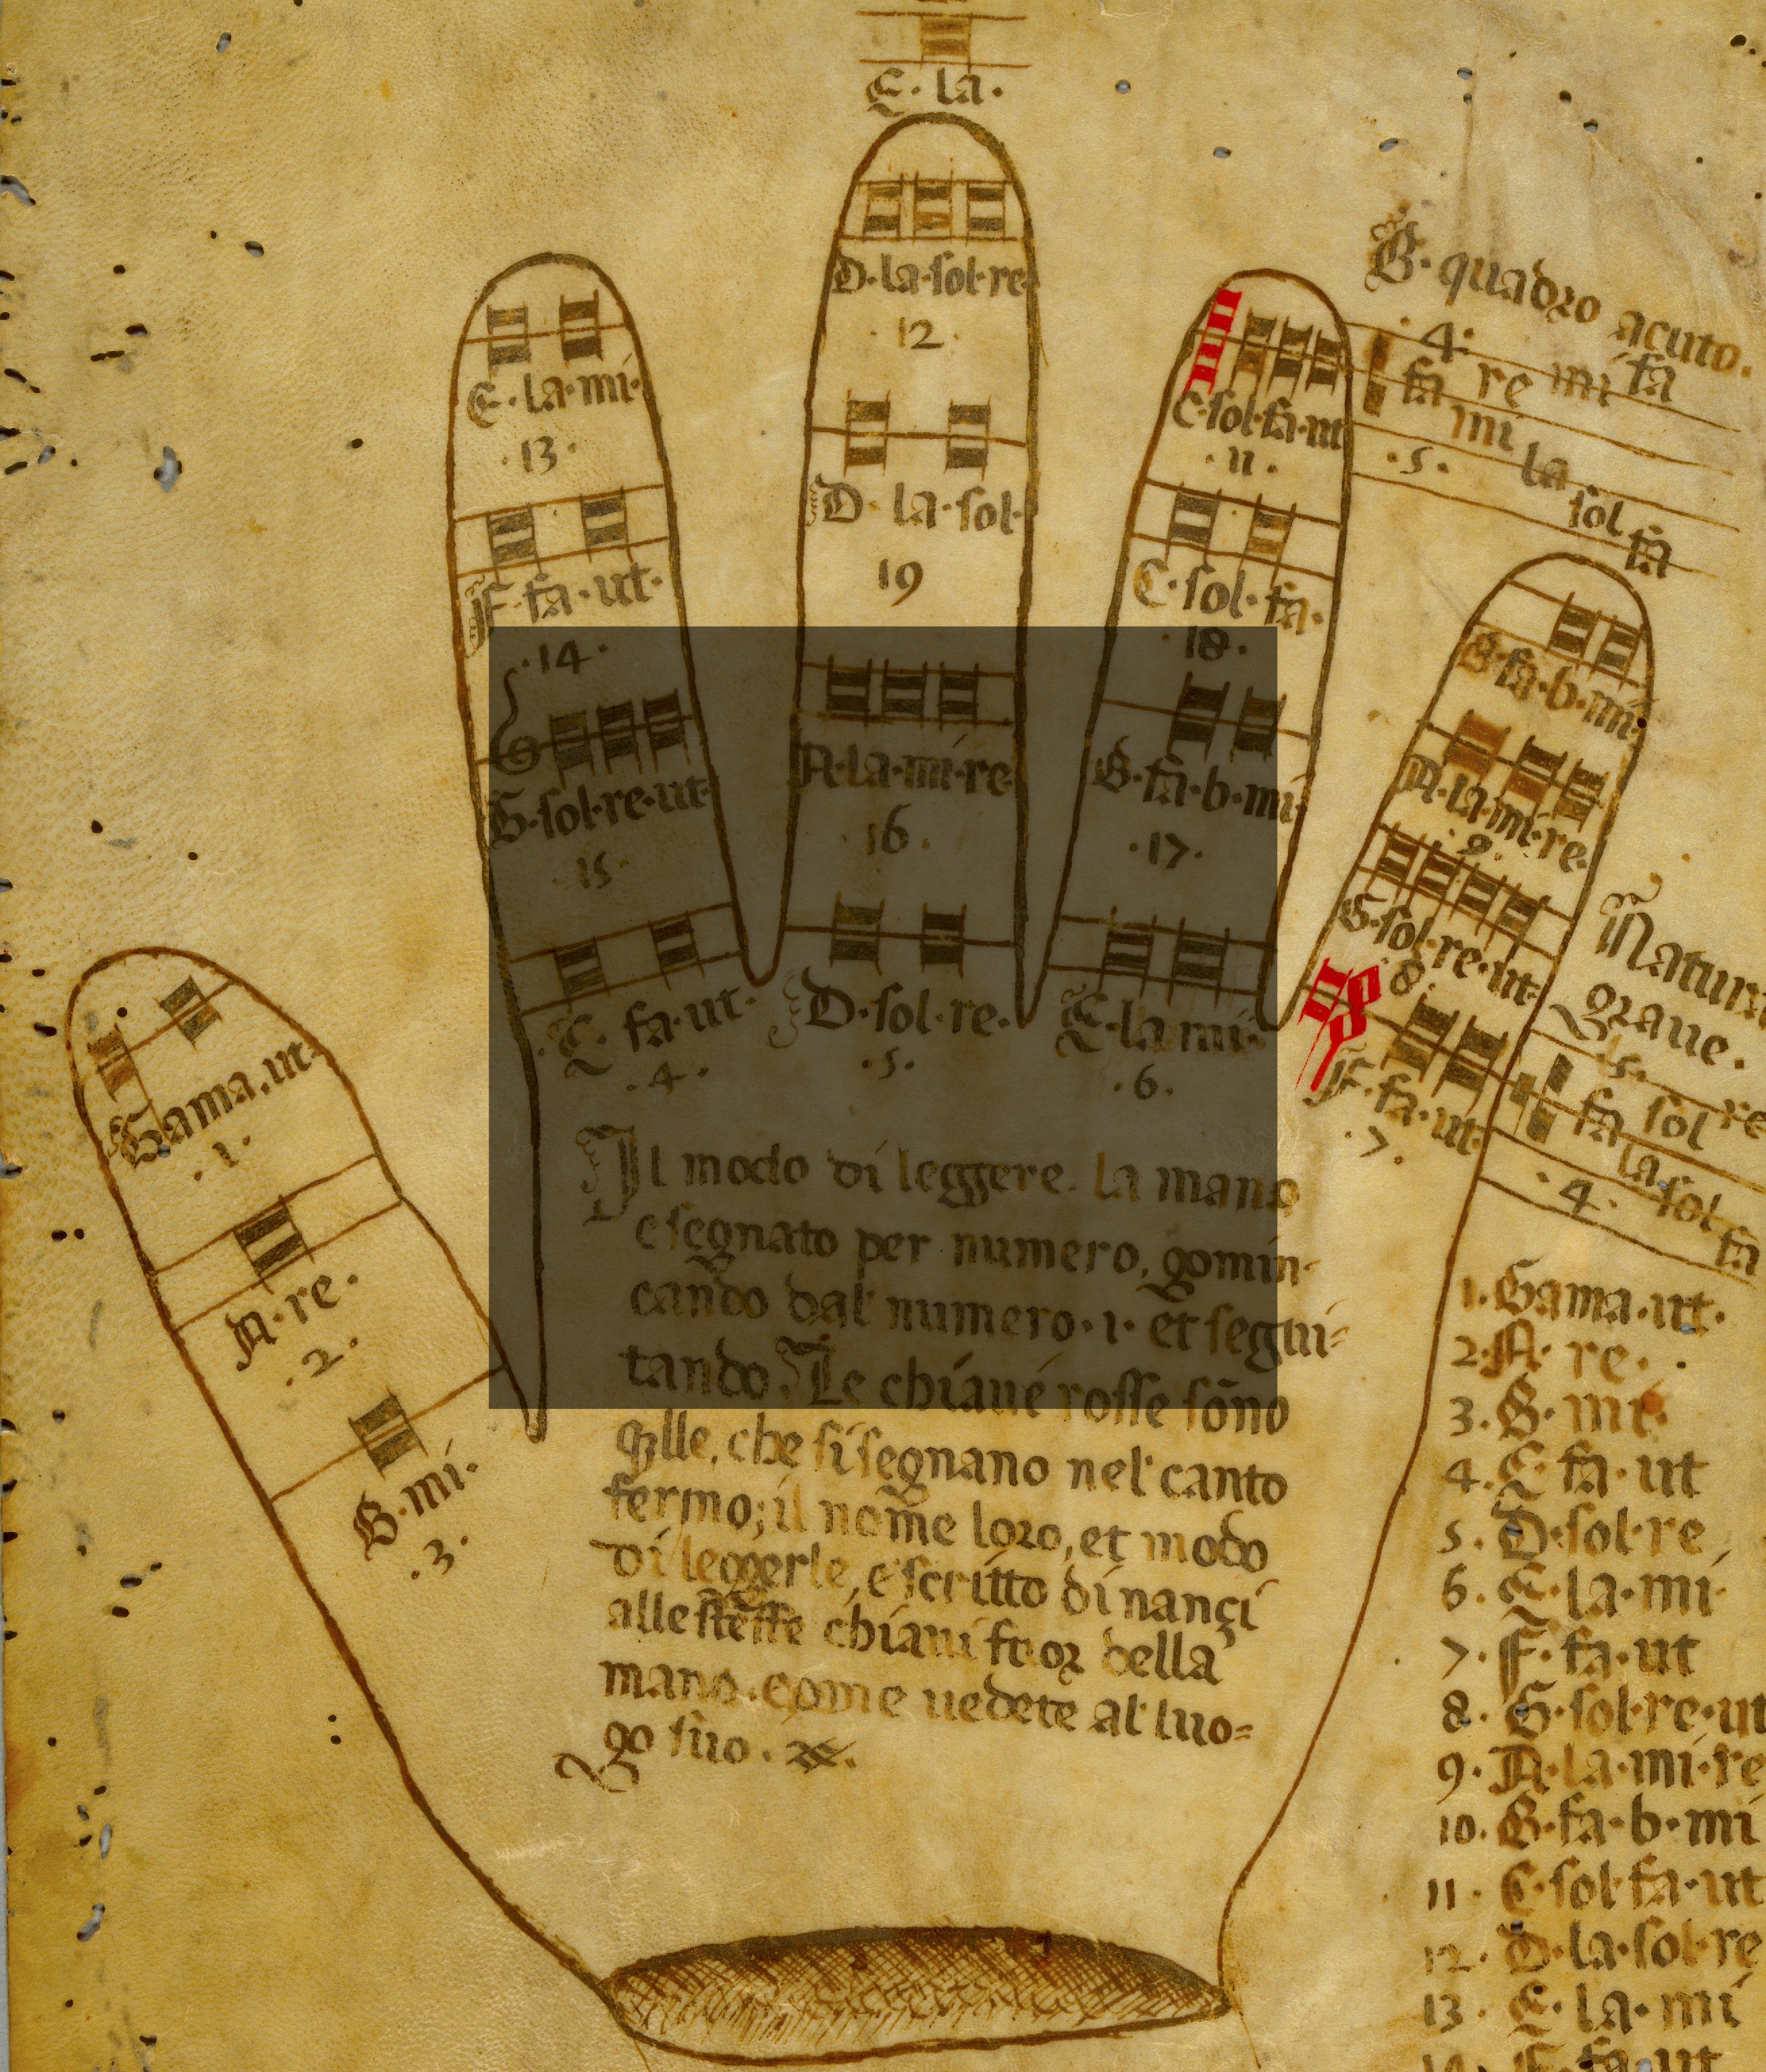 E. la.
D. la. sol. re.
12.
D. la. sol.
19
E. la. mi.
13.
F. fa. ut.
14.
G. sol. re. ut.
15.
C. fa. ut.
4.
A. la. mi. re.
16.
D. sol. re.
5.
C. sol. fa. ut
11.
C. sol. fa.
18.
B. fa. b. mi.
17.
E. la. mi.
6.
B. quadro acuto.
4.
fa re mi fa
fa mi la sol fa
5.
B. fa. b. mi.
A. la. mi. re.
9.
G. sol. re. ut.
8.
F. fa. ut.
7.
graue.
5.
fa sol re
la sol fa
4.
Gama. ut.
1.
A. re.
2.
B. mi.
3.
Il modo di leggere. la mano
e segnato per numero, gomin-
cando dal numero. 1. et segui=
tando. Le chiaue rosse sōno
q̄lle, che si segnano nel canto
fermo; il nome loro, et modo
di leggerle, e scritto dinançi
alle stesse chiaui fuor della
mano. come uedete al luo=
go suo.
1. Gama. ut.
2. A. re.
3. B. mi.
4. C fa. ut
5. D. sol. re
6. E. la. mi
7. F. fa. ut
8. G. sol. re. ut
9. A. la. mi. re
10. B. fa. b. mi
11. C. sol fa. ut
12. D. la. sol. re
13. E. la. mi
14. F. fa. ut